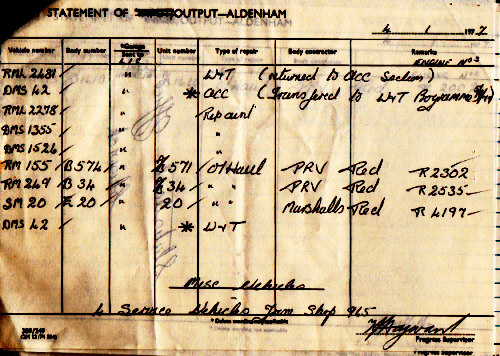 STATEMENT OF OUTPUT—ALDENHAM
4 1 1977
Vehicle number Body number Sent to Unit number Type of repair Body contractor Remarks
ENGINE Nos
RML 2481 " W+T (returned to acc Section)
DMS 42 " * acc (Transfered to W+T Programme
RML 2278 " Repaint
DMS 1355 " "
DMS 1526 " "
RM 155 B574 " Z571 O/Haul PRV Red R2302
RM 249 B34 " Z34 " " PRV Red R2535
SM 20 Z 20 " 20 " " Marshalls Red R 4197
DMS 42 " * W+T
Misc Vehicles
4 Service Vehicles from Shop 965
* Delete whichever inapplicable
Progress Supervisor